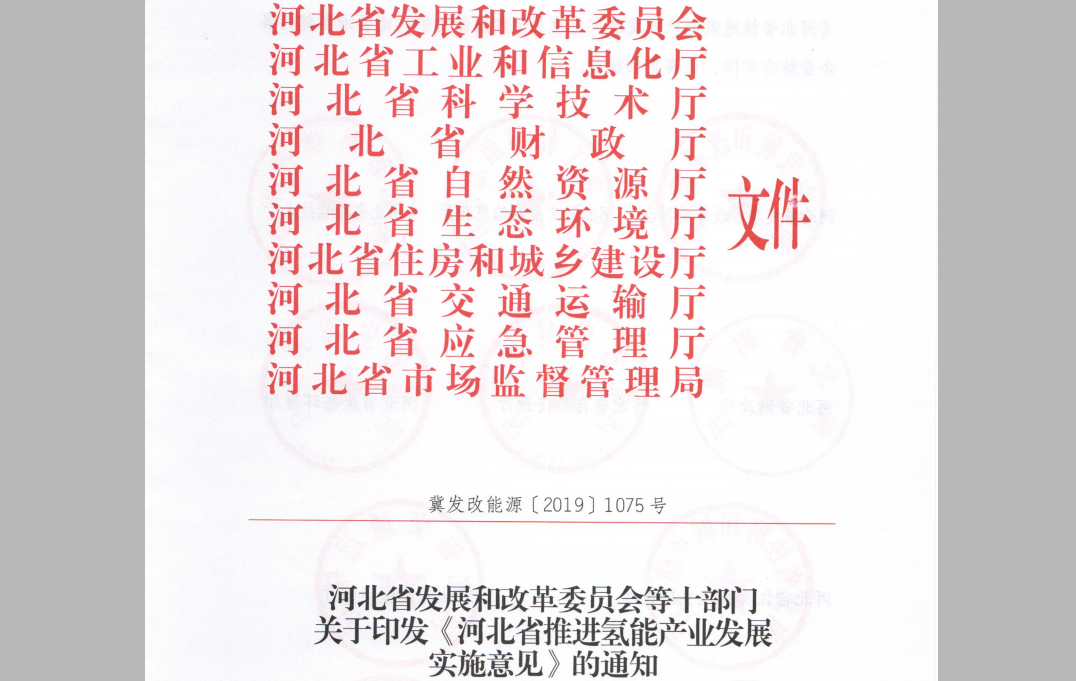 河北省发展和改革委员会
河北省工业和信息化厅
河北省科学技术厅
河北省财政厅
河北省自然资源厅
河北省生态环境厅
河北省住房和城乡建设厅
河北省交通运输厅
河北省应急管理厅
河北省市场监督管理局
文件
冀发改能源〔2019〕1075号
河北省发展和改革委员会等十部门
关于印发《河北省推进氢能产业发展
实施意见》的通知